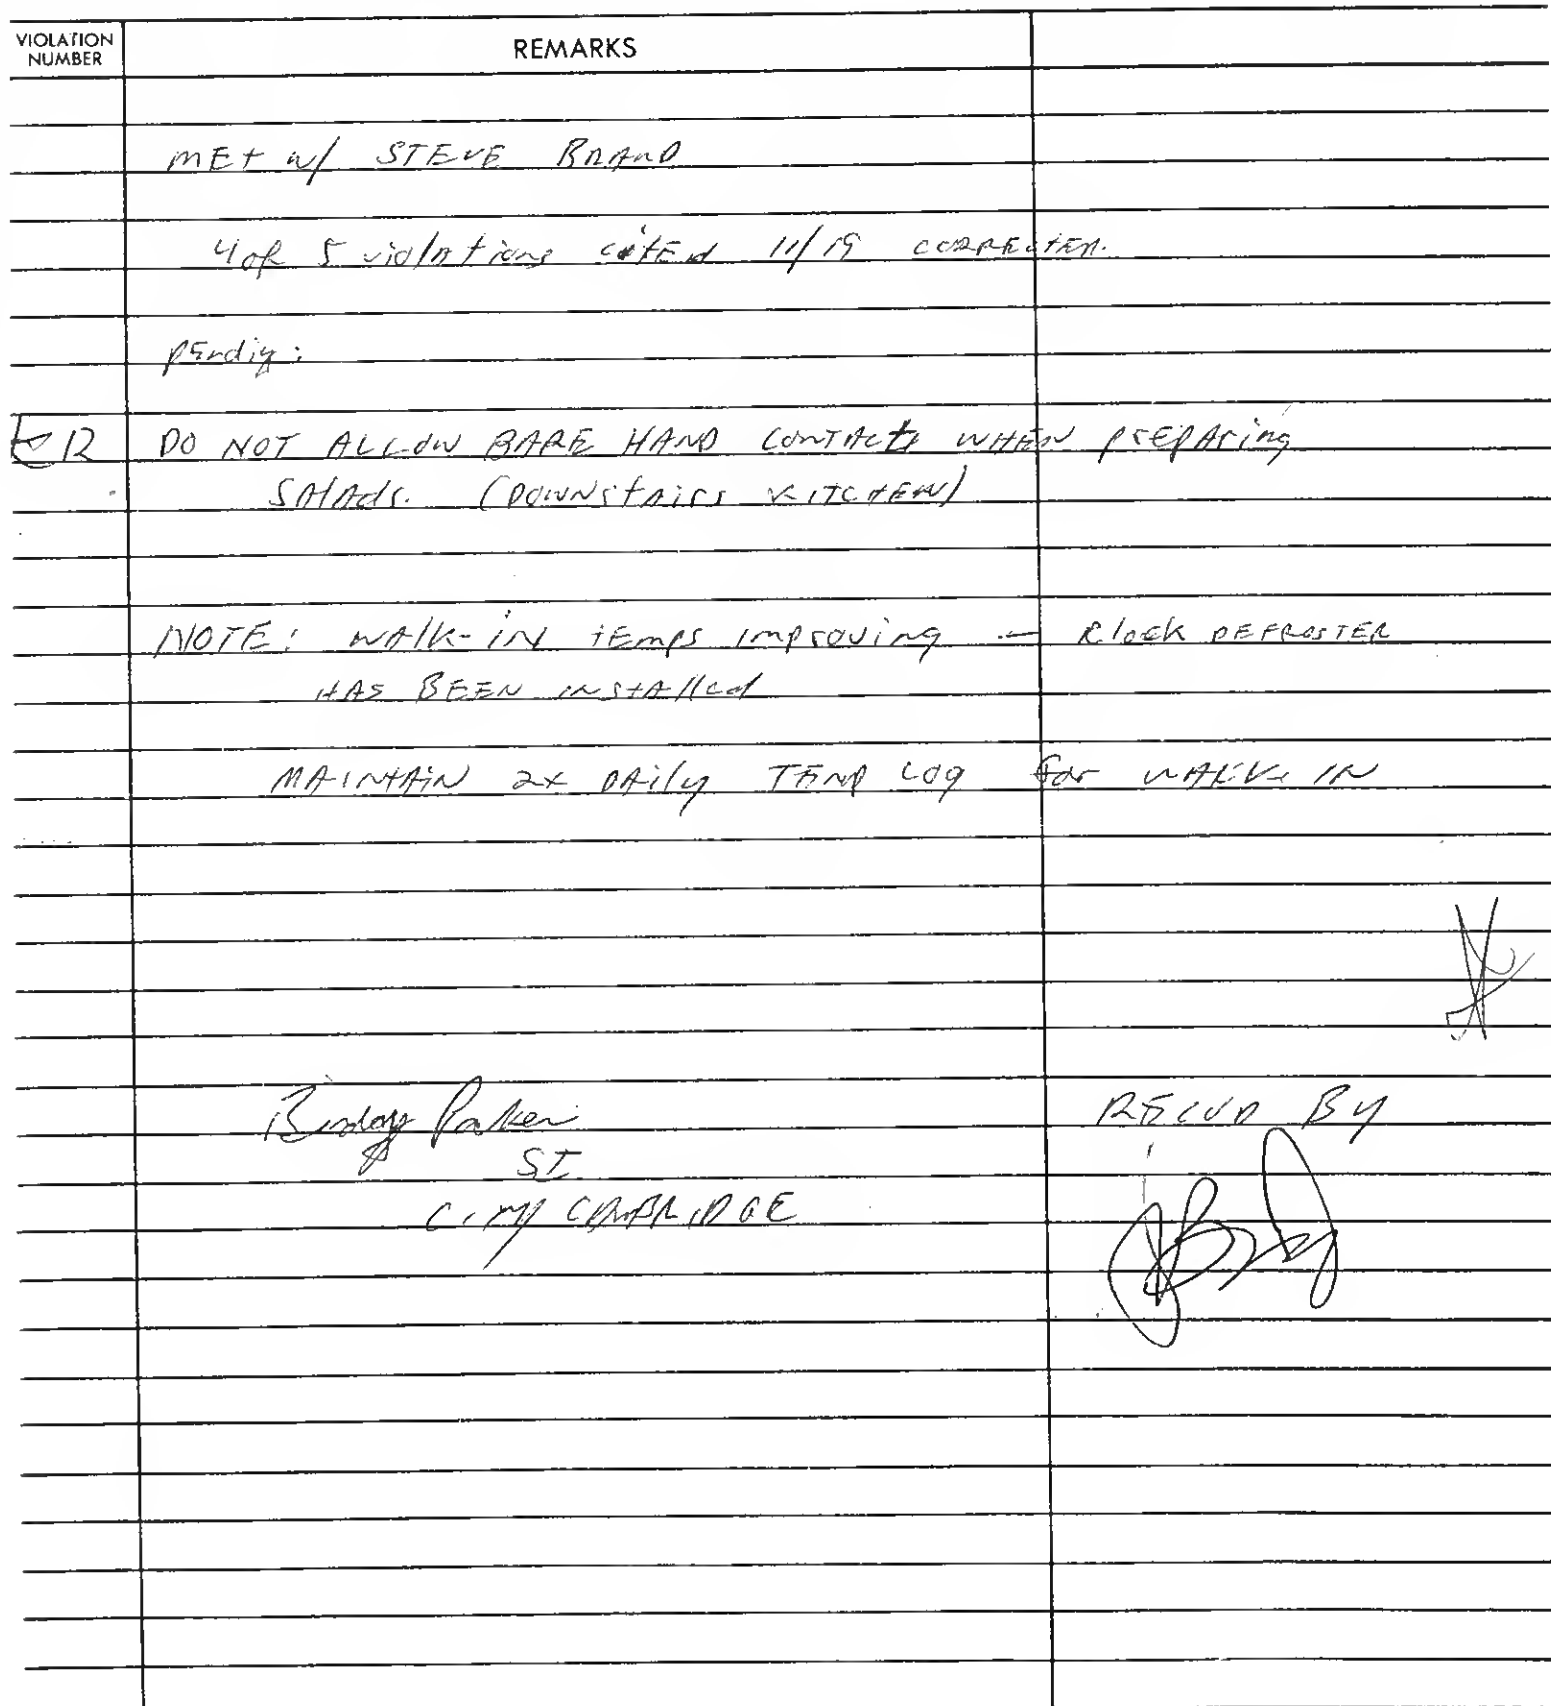 VIOLATION
NUMBER
REMARKS
MET w/ STEVE BRAND
4 of 5 violations citEd 11/19 CORRECTED.
pEndig:
12 DO NOT ALLOW BARE HAND CONTACTS WHEN PREPARing
SAlAds. (DOWNStAirs KITCHEN)
NOTE: WAlk-IN tEmps improving — Clock DEFROSTER
HAS BEEN INStAlled
MAINTAIN 2x DAily TEMP LOG for WALK-IN
Parker
SI.
City CAMBRIDGE
RECVD BY